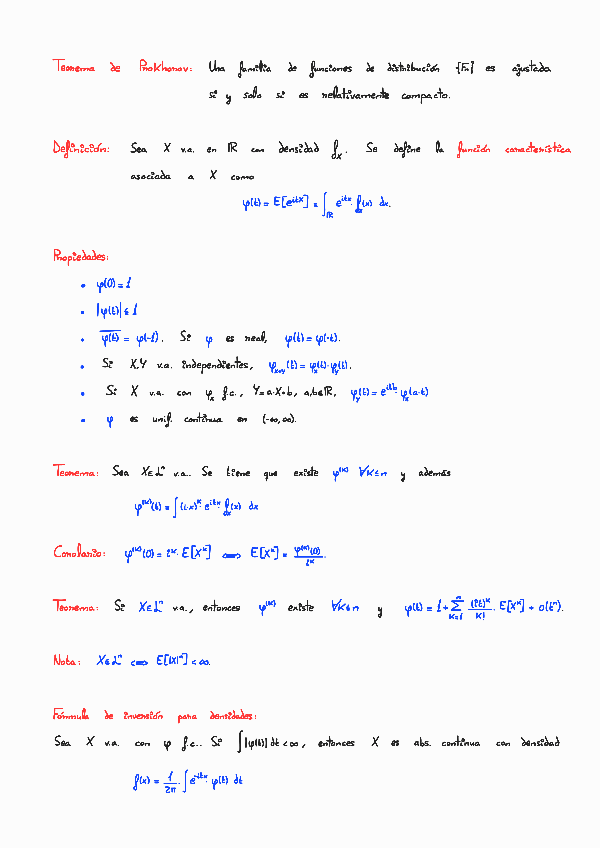 Teorema de Prokhorov: Una familia de funciones de distribución {Fn} es ajustada
si y solo si es relativamente compacto.
Definición: Sea X v.a. en ℝ con densidad f_X. Se define la función característica
asociada a X como
φ(t) = E[e^{itX}] = ∫_ℝ e^{itx}·f_X(x) dx.
Propiedades:
• φ(0) = 1
• |φ(t)| ≤ 1
• \overline{φ(t)} = φ(-t). Si φ es real, φ(t) = φ(-t).
• Si X,Y v.a. independientes, φ_{X+Y}(t) = φ_X(t)·φ_Y(t).
• Si X v.a. con φ_X f.c., Y = a·X+b, a,b∈ℝ, φ_Y(t) = e^{itb}·φ_X(a·t)
• φ es unif. continua en (-∞,∞).
Teorema: Sea X∈L^n v.a.. Se tiene que existe φ^{(k)} ∀k≤n y además
φ^{(k)}(t) = ∫(i·x)^k·e^{itx}·f_X(x) dx
Corolario: φ^{(k)}(0) = i^k·E[X^k] ⟺ E[X^k] = φ^{(k)}(0)/i^k.
Teorema: Si X∈L^n v.a., entonces φ^{(k)} existe ∀k≤n y φ(t) = 1 + Σ_{k=1}^n (it)^k/k! · E[X^k] + o(t^n).
Nota: X∈L^n ⟺ E[|X|^n] < ∞.
Fórmula de inversión para densidades:
Sea X v.a. con φ f.c.. Si ∫|φ(t)| dt < ∞, entonces X es abs. continua con densidad
f(x) = 1/2π · ∫ e^{-itx}·φ(t) dt